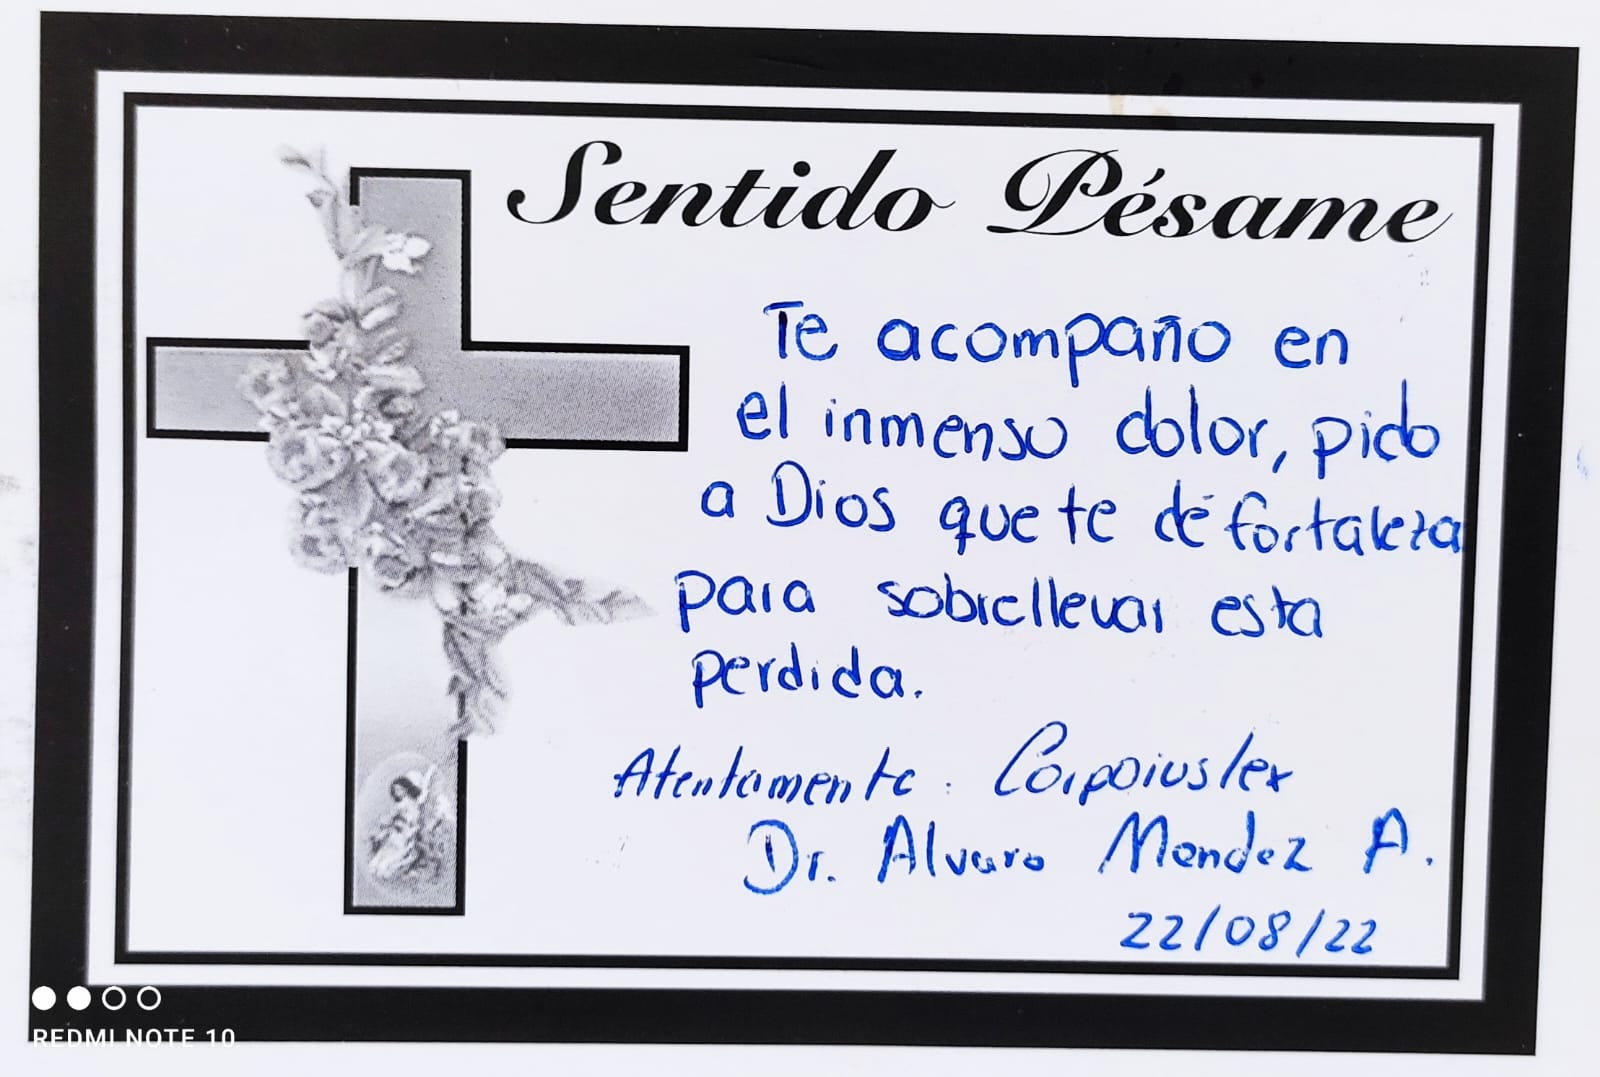 Sentido Pésame
Te acompaño en
el inmenso dolor, pido
a Dios que te dé fortaleza
para sobrellevar esta
perdida.
Atentamente: Corpoiuslex
Dr. Alvaro Mendez A.
22/08/22
REDMI NOTE 10